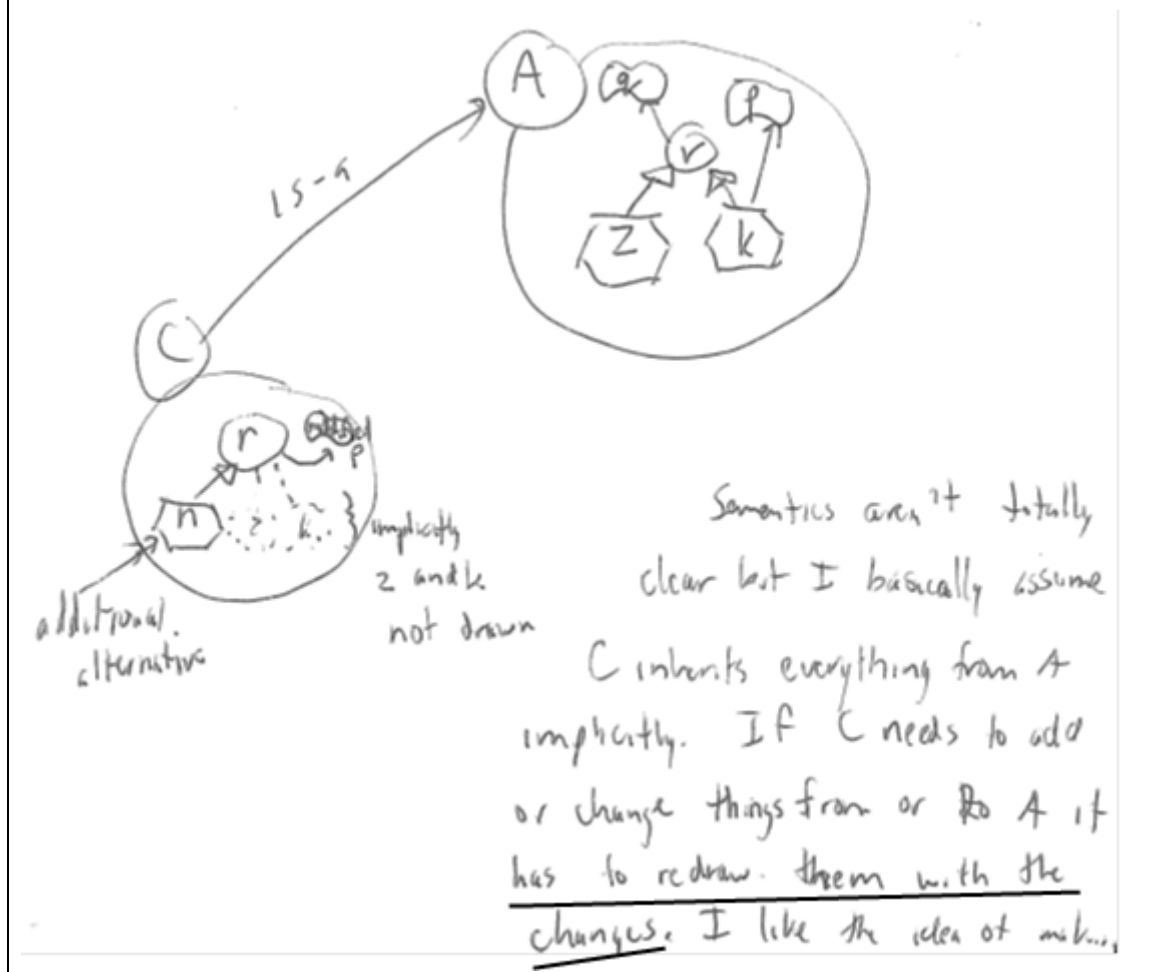 A
q
p
r
z
k
is-a
C
r
p
n
z
k
implicitly
z and k
not drawn
additional
alternative
Semantics aren't totally
clear but I basically assume
C inherits everything from A
implicitly. If C needs to add
or change things from or to A it
has to redraw them with the
changes. I like the idea of